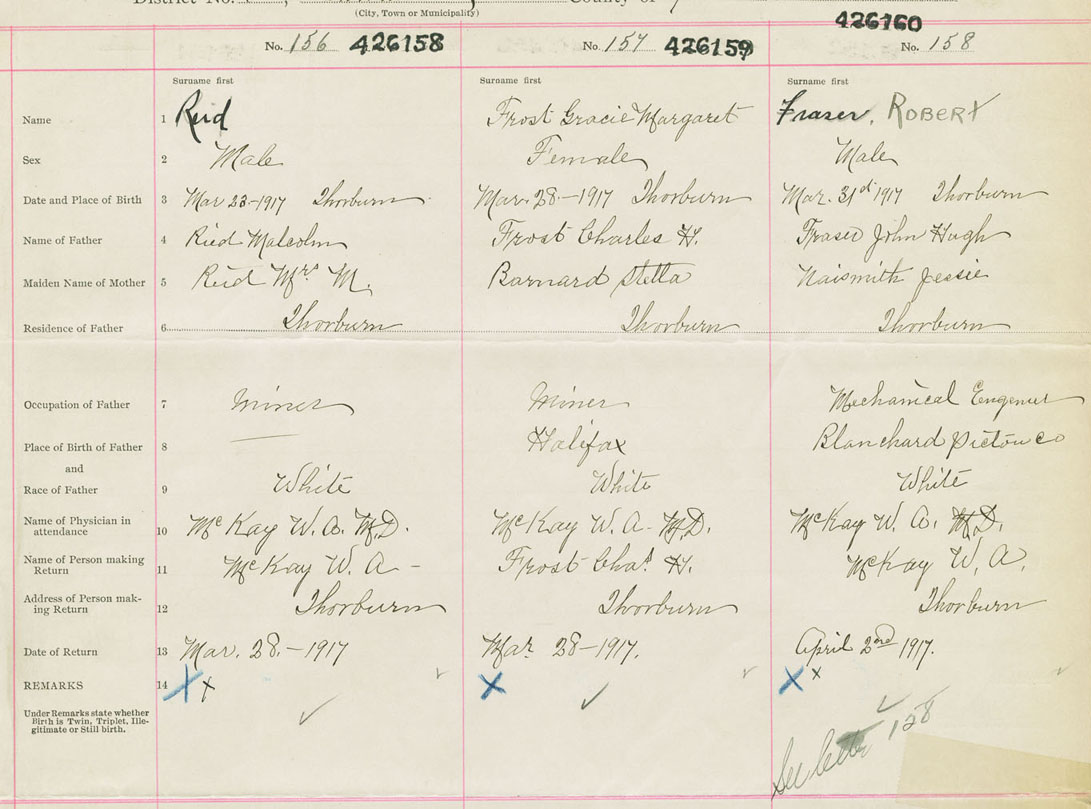 District No. County of
(City, Town or Municipality)
426160
No. 156 426158 No. 157 426159 No. 158
Surname first Surname first Surname first
Name 1 Reid Frost Gracie Margaret Fraser, ROBERT
Sex 2 Male Female Male
Date and Place of Birth 3 Mar 23-1917 Thorburn Mar. 28-1917 Thorburn Mar. 31st 1917 Thorburn
Name of Father 4 Ried Malcolm Frost Charles H. Fraser John Hugh
Maiden Name of Mother 5 Reid Mrs M. Barnard Stella Naismith Jessie
Residence of Father 6 Thorburn Thorburn Thorburn
Occupation of Father 7 Miner Miner Mechanical Engenier
Place of Birth of Father 8 — Halifax Blanchard Pictou co
and
Race of Father 9 White White White
Name of Physician in
attendance 10 McKay W. A. M.D. McKay W. A- M.D. McKay W. A. M.D.
Name of Person making
Return 11 McKay W. A- Frost Chas. H. McKay W. A.
Address of Person mak-
ing Return 12 Thorburn Thorburn Thorburn
Date of Return 13 Mar. 28.-1917 Mar. 28-1917. April 2nd 1917.
REMARKS 14 X x X X x
Under Remarks state whether
Birth is Twin, Triplet, Ille-
gitimate or Still birth.
See letter 128